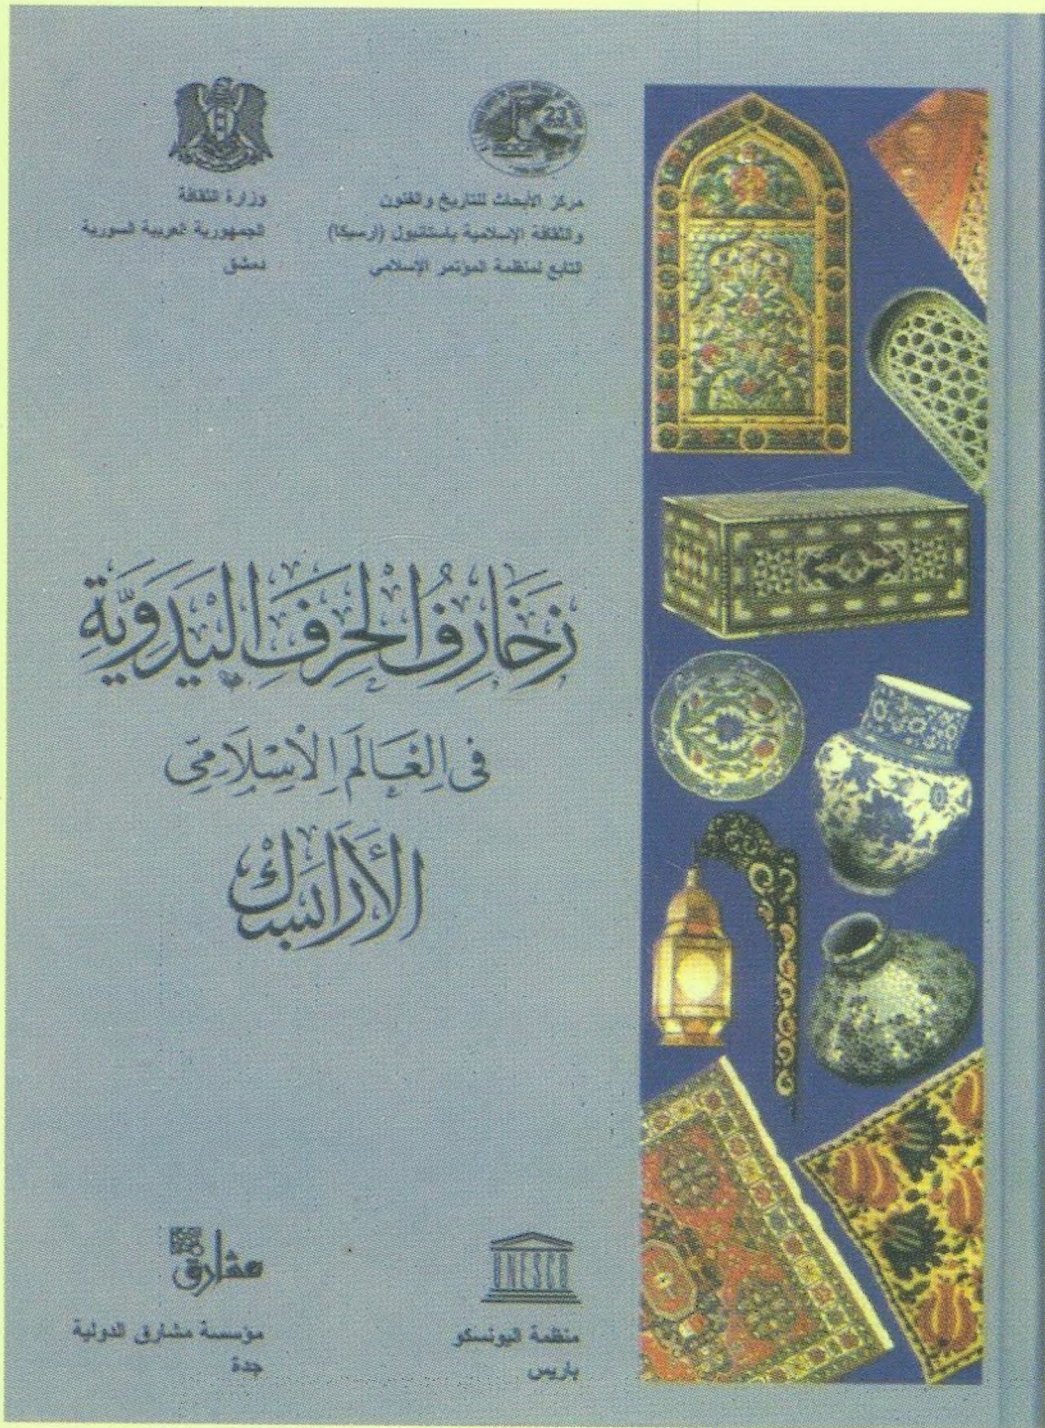 مركز الأبحاث للتاريخ والفنون
والثقافة الإسلامية باستانبول (ارسيكا)
التابع لمنظمة المؤتمر الإسلامي
وزارة الثقافة
الجمهورية العربية السورية
دمشق
23
زَخَارِفُ الْحِرَفِ الْيَدَوِيَّةِ
فِي الْعَالَمِ الْإِسْلَامِيِّ
الأَرَابَسْك
UNESCO
منظمة اليونسكو
باريس
مشارق
مؤسسة مشارق الدولية
جدة